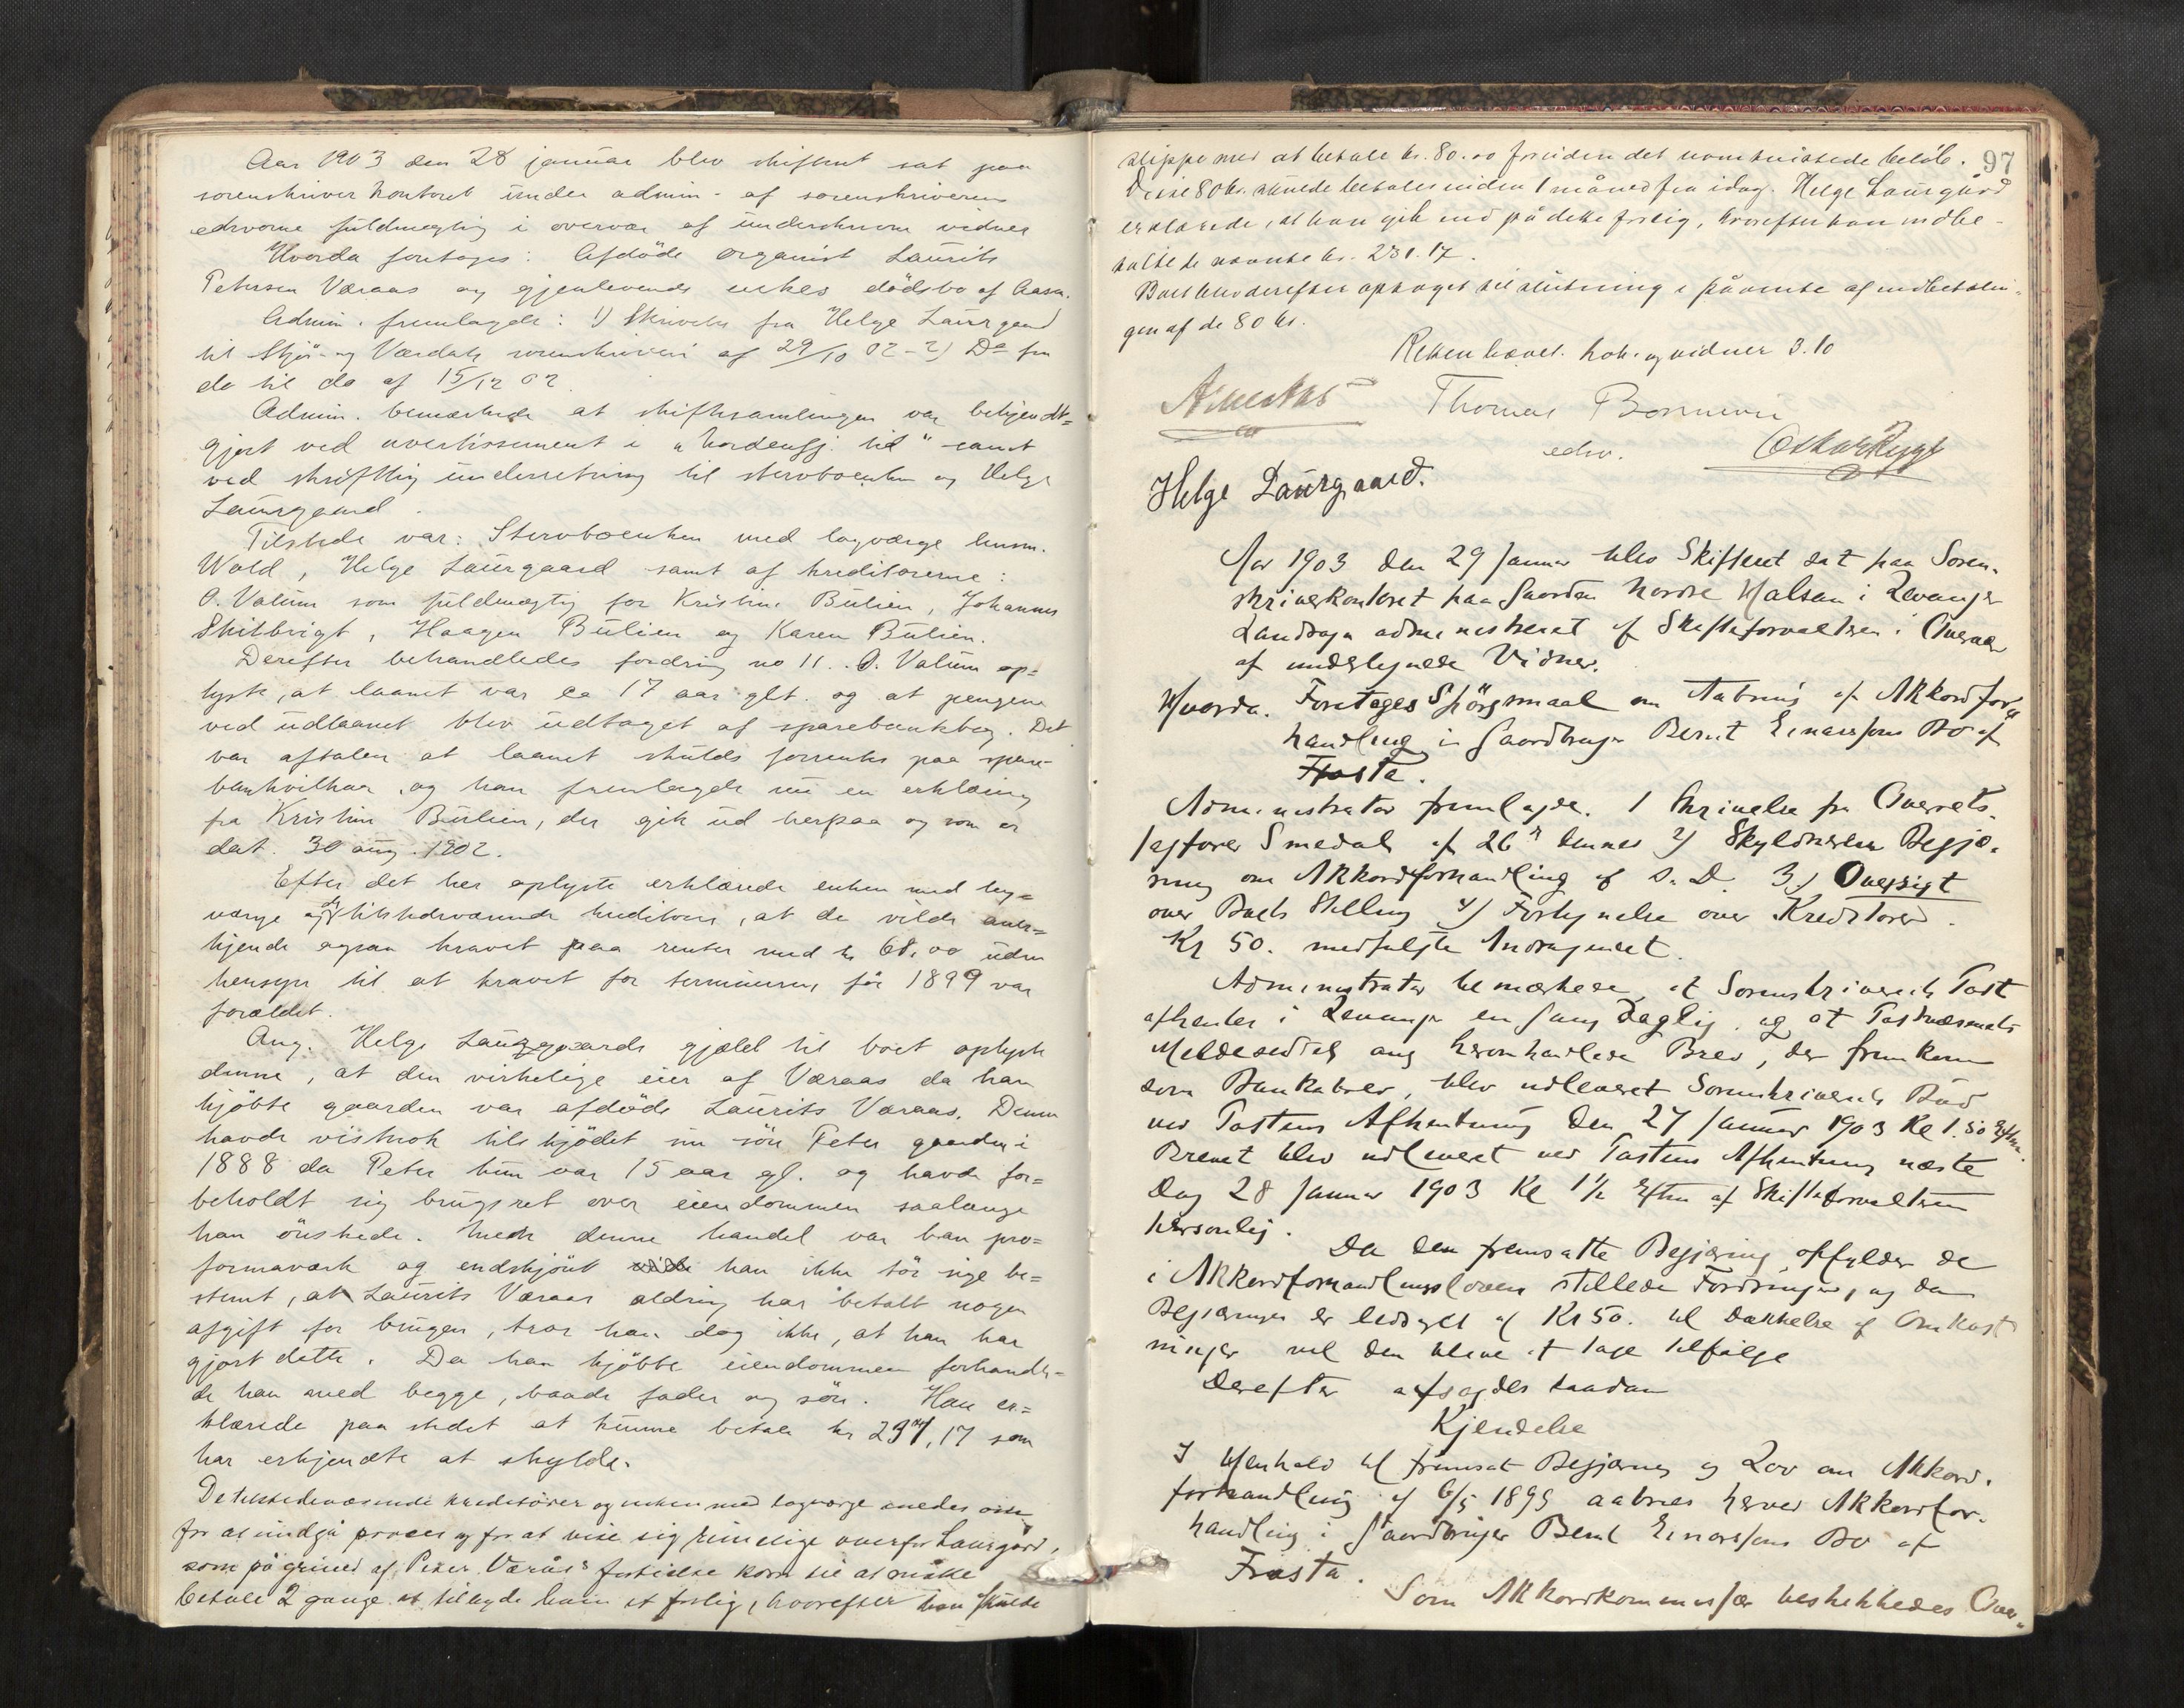 Aar 1903 den 28 januar blev skifteret sat paa
sorenskriverkontoret under admin. af sorenskriverens
edsvorne fuldmægtig i overvær af underskrevne vidner
Hvorda foretoges: Afdöde organist Laurits
Petersen Væraas og gjenlevende enkes dödsbo af Aasen.
Admin. fremlagde: 1) Skrivelse fra Helge Laurgaard
til Stjör- og Værdals sorenskriveri af 29/10 02 - 2) Do fra
do til do af 15/12 02.
Admin. bemærkede at skiftesamlingen var bekjendt=
gjort ved avertissement i "Nordenfj. tid" samt
ved skriftlig underretning til stervboenken og Helge
Laurgaard.
Tilstede var: Stervboenken med lagværge husm.
Wold, Helge Laurgaard samt af kreditorerne:
O. Valum som fuldmægtig for Kristine Bulien, Johannes
Skilbrigt, Haagen Bulien og Karen Bulien.
Derefter behandledes fordring no 11. O. Valum op=
lyste, at laanet var ca 17 aar glt. og at pengene
ved udlaanet blev udtaget af sparebankbog. Det
var aftalen at laanet skulde forrentes paa spare-
bankvilkaar, og han fremlagde nu en erklæring
fra Kristine Bulien, der gik ud herpaa og som er
dat. 30 aug. 1902.
Efter det her oplyste erklærede enken med lag=
værge og de tilstedeværende kreditorer, at de vilde aner=
kjende ogsaa kravet paa renter med kr 68.00 uden
hensyn til at kravet for terminerne för 1899 var
forældet.
Ang. Helge Laurgaards gjæld til boet oplyste
denne, at den virkelige eier af Væraas da han
kjöbte gaarden var afdöde Laurits Væraas. Denne
havde vistnok tilskjödet sin sön Peter gaarden i
1888 da Peter kun var 15 aar gl. og havde for=
beholdt sig brugsret over eiendommen saalænge
han önskede. Men denne handel var kun pro=
formaværk og endskjönt han ikke tör sige be=
stemt, at Laurits Væraas aldrig har betalt nogen
afgift for brugen, tror han dog ikke, at han har
gjort dette. Da han kjöbte eiendommen forhandle-
de han med begge, baade fader og sön. Han er=
klærede paa stedet at kunne betale kr 231,17 som
har erkjendte at skylde.
De tilstedeværende kreditorer og enken med lagværge enedes om
for at undgå proces og for at vise sig rimelige overfor Laurgård,
som på grund af Peter Værås's forhold kom til at måtte
betale 2 gange at tilbyde ham et forlig, hvorefter han skulde
97
slippe med at betale kr. 80.00 foruden det uomtvistede beløb.
Disse 80 kr. skulde betales inden 1 måned fra idag. Helge Laurgård
erklærede, at han gik ind på dette forlig, hvorefter han indbe-
talte de nævnte kr. 231.17.
Boet blev derefter optaget til slutning i påvente af indbetalin-
gen af de 80 kr.
Retten hævet. Prot. og vidner 3.10
Thomas
edsv.
Oskar Rygg
Helge Laurgaard.
Aar 1903 den 29 Januar blev Skifteret sat paa Soren-
skriverkontoret paa Gaarden Nordre Halsan i Levanger
Landsogn administreret af Skifteforvalteren i Overvær
af undertegnede Vidner.
Hvorda. Foretages Spörgsmaal om Aabning af Akkordfor=
handling i Gaardbruger Bernt Einarssens Bo af
Frosta.
Administrator fremlagde. 1 Skrivelse fra Overrets-
sagförer Smedal af 26de dennes 2) Skyldnerens Begjæ-
ring om Akkordforhandling af s. D. 3) Oversigt
over Boets Stilling 4) Fortegnelse over Kreditorer.
Kr 50. medfulgte Andragendet.
Administrator bemærkede, at Sorenskriverens Post
afhentes i Levanger en Gang daglig, og at Postvæsenets
Meldeseddel ang heromhandlede Brev, der fremkom
som Bankobrev, blev udleveret Sorenskriverens Bud
ved Postens Afhentning den 27 Januar 1903 Kl 1.30 Eftm.
Brevet blev udleveret ved Postens Afhentning næste
Dag 28 Januar 1903 Kl 1½ Eftm af Skifteforvalteren
personlig.
Da den fremsatte Begjæring opfylder de
i Akkordforhandlingsloven stillede Fordringer, og da
Begjæringen er ledsaget af Kr 50. til Dækkelse af Omkost
ninger vil den blive at tage tilfölge
Derefter afsagdes saadan
Kjendelse
I Henhold til fremsat Begjæring og Lov om Akkord.
forhandling af 6/5 1899 aabnes herved Akkordfor-
handling i Gaardbruger Bernt Einarssens Bo af
Frosta.
Som Akkordkommissær beskikkedes Over-